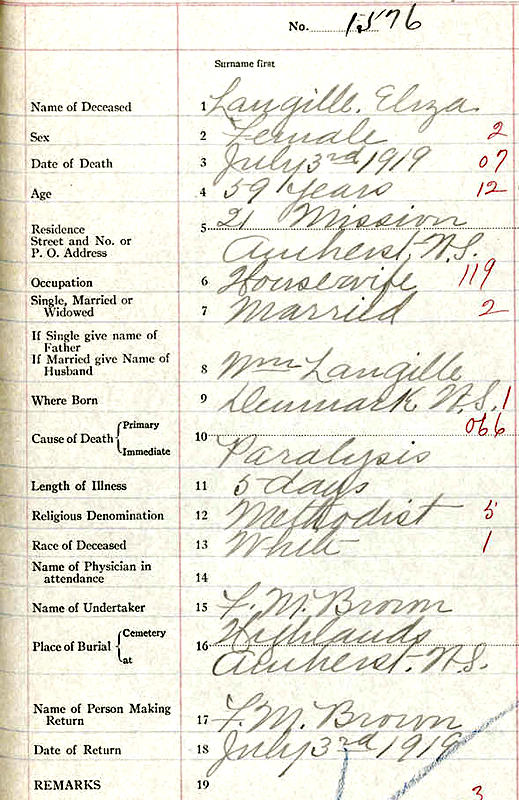 No. 1576
Surname first
Name of Deceased 1 Langille, Eliza
Sex 2 Female 2
Date of Death 3 July 3rd 1919 07
Age 4 59 Years 12
Residence 5 21 Mission
Street and No. or
P. O. Address Amherst, N.S.
Occupation 6 Housewife 119
Single, Married or
Widowed 7 Married 2
If Single give name of
Father
If Married give Name of
Husband 8 Wm Langille
Where Born 9 Denmark N.S. 1
Cause of Death { Primary 10 066
Immediate Paralysis
Length of Illness 11 5 days
Religious Denomination 12 Methodist 5
Race of Deceased 13 White 1
Name of Physician in
attendance 14
Name of Undertaker 15 F. M. Brown
Place of Burial { Cemetery 16 Highlands
at Amherst. N.S.
Name of Person Making
Return 17 F. M. Brown
Date of Return 18 July 3rd 1919
REMARKS 19
3